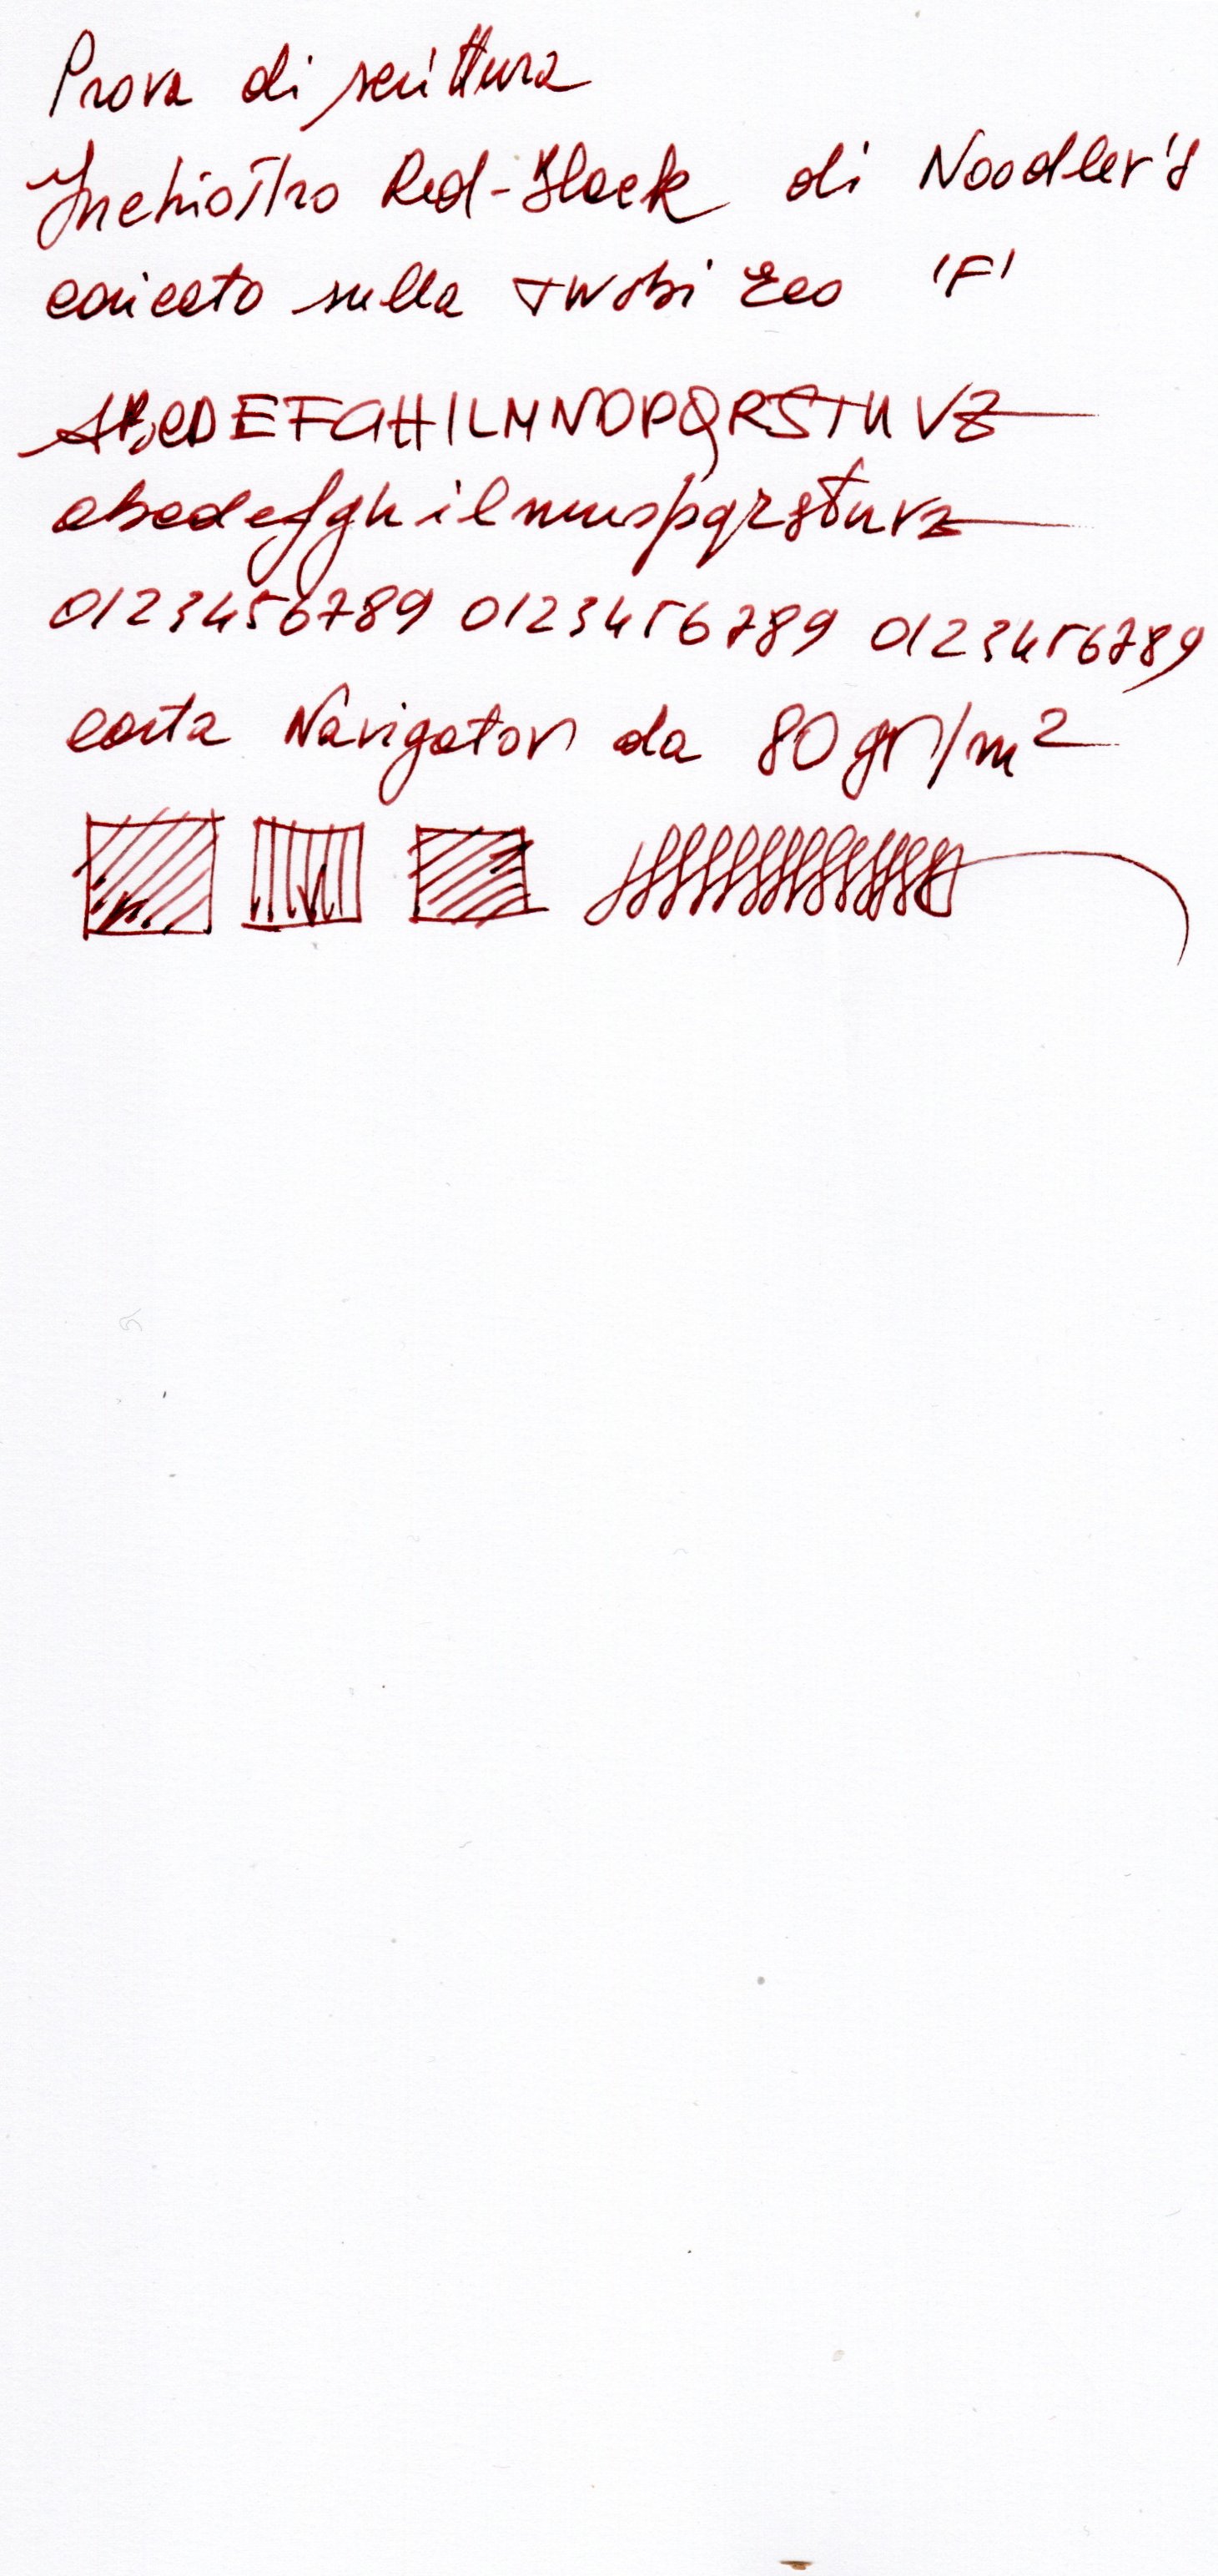 Prova di scrittura
Inchiostro Red-Black di Noodler's
caricato sulla TWSBI Eco 'F'
ABCDEFGHILMNOPQRSTUVZ
abcdefghilmnopqrstuvz
0123456789 0123456789 0123456789
carta Navigator da 80 gr/m²